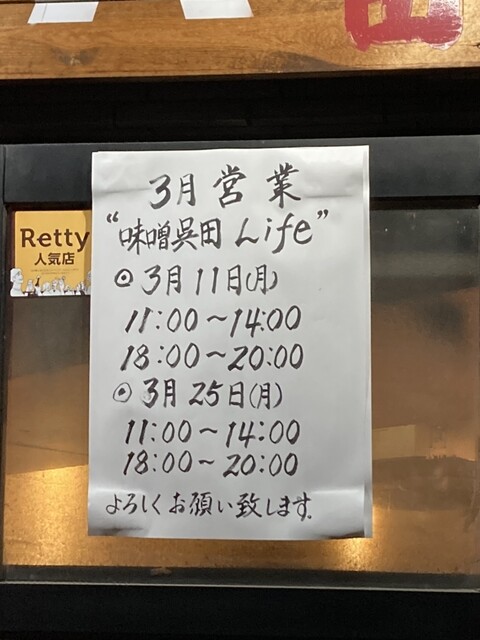 3月営業
“味噌呉田Life”
◎3月11日(月)
11:00～14:00
18:00～20:00
◎3月25日(月)
11:00～14:00
18:00～20:00
よろしくお願い致します。
Retty
人気店